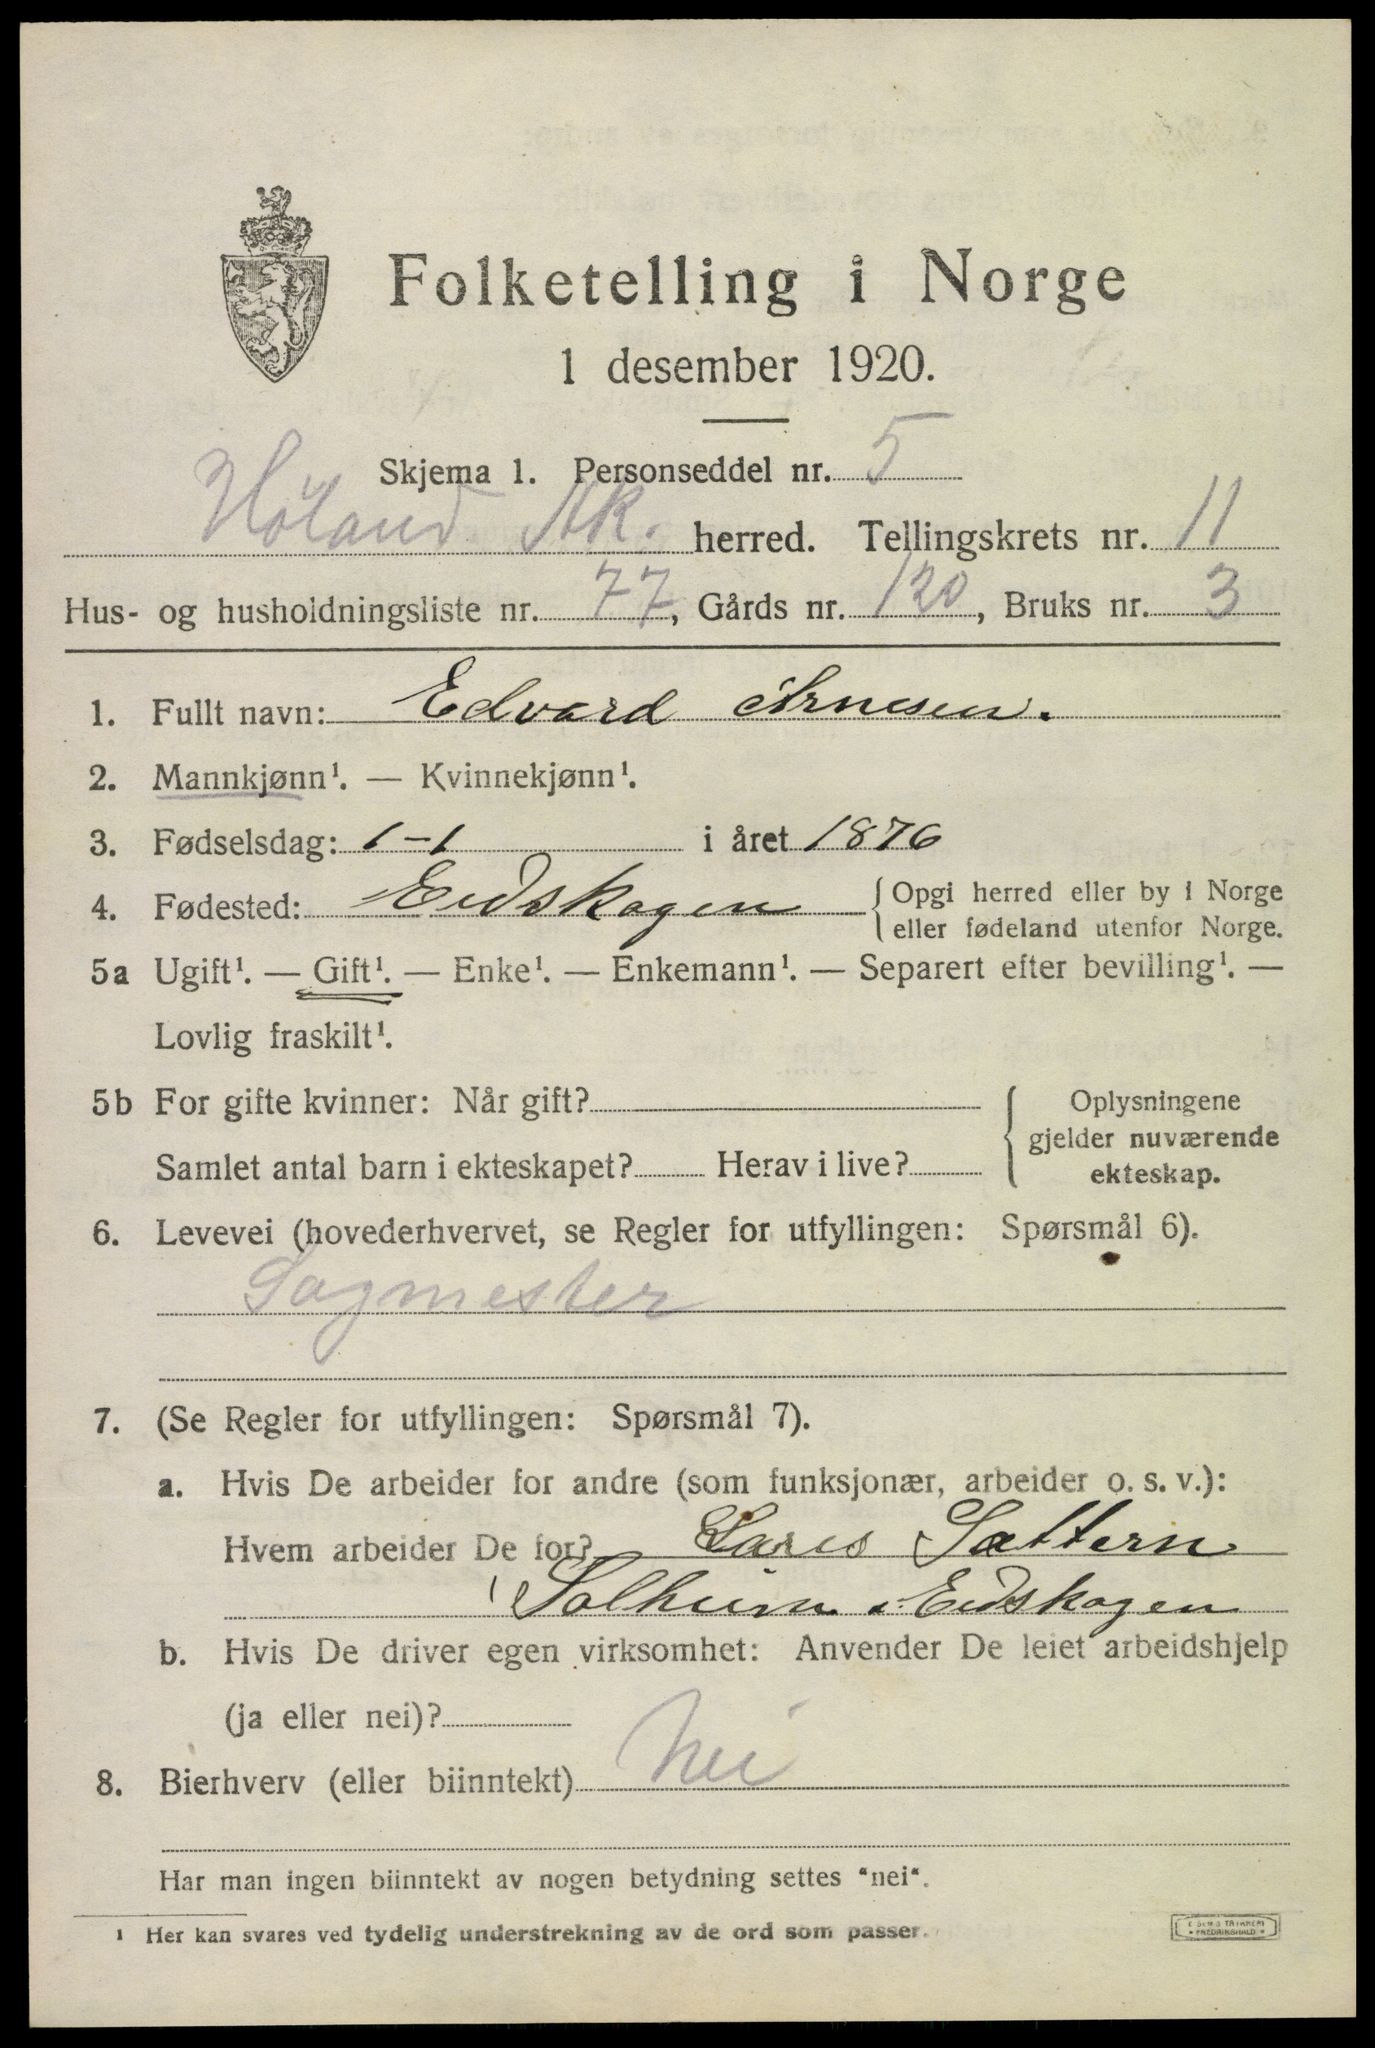 Folketelling i Norge
1 desember 1920.
Skjema 1. Personseddel nr. 5
Høland Ak. herred. Tellingskrets nr. 11
Hus- og husholdningsliste nr. 77, Gårds nr. 120, Bruks nr. 3
1. Fullt navn: Edvard Arnesen.
2. Mannkjønn¹. — Kvinnekjønn¹.
3. Fødselsdag: 1-1 i året 1876
4. Fødested: Eidskogen { Opgi herred eller by i Norge
eller fødeland utenfor Norge.
5a Ugift¹. — Gift¹. — Enke¹. — Enkemann¹. — Separert efter bevilling¹. —
Lovlig fraskilt¹.
5b For gifte kvinner: Når gift?
Samlet antal barn i ekteskapet? Herav i live?
{ Oplysningene
gjelder nuværende
ekteskap.
6. Levevei (hovederhvervet, se Regler for utfyllingen: Spørsmål 6).
Sagmester
7. (Se Regler for utfyllingen: Spørsmål 7).
a. Hvis De arbeider for andre (som funksjonær, arbeider o. s. v.):
Hvem arbeider De for? Lars Sættern
Solheim i Eidskogen
b. Hvis De driver egen virksomhet: Anvender De leiet arbeidshjelp
(ja eller nei)?
8. Bierhverv (eller biinntekt) Nei
Har man ingen biinntekt av nogen betydning settes "nei".
¹ Her kan svares ved tydelig understrekning av de ord som passer.